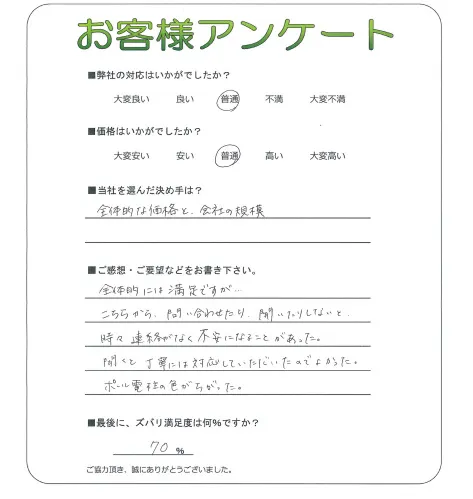 お客様アンケート
■弊社の対応はいかがでしたか？
大変良い 良い 普通 不満 大変不満
■価格はいかがでしたか？
大変安い 安い 普通 高い 大変高い
■当社を選んだ決め手は？
全体的な価格と、会社の規模
■ご感想・ご要望などをお書き下さい。
全体的には満足ですが…
こちらから、問い合わせたり、聞いたりしないと、
時々連絡がなく不安になることがあった。
聞くと丁寧には対応していただいたのでよかった。
ポール電柱の色がちがった。
■最後に、ズバリ満足度は何%ですか？
70 %
ご協力頂き、誠にありがとうございました。